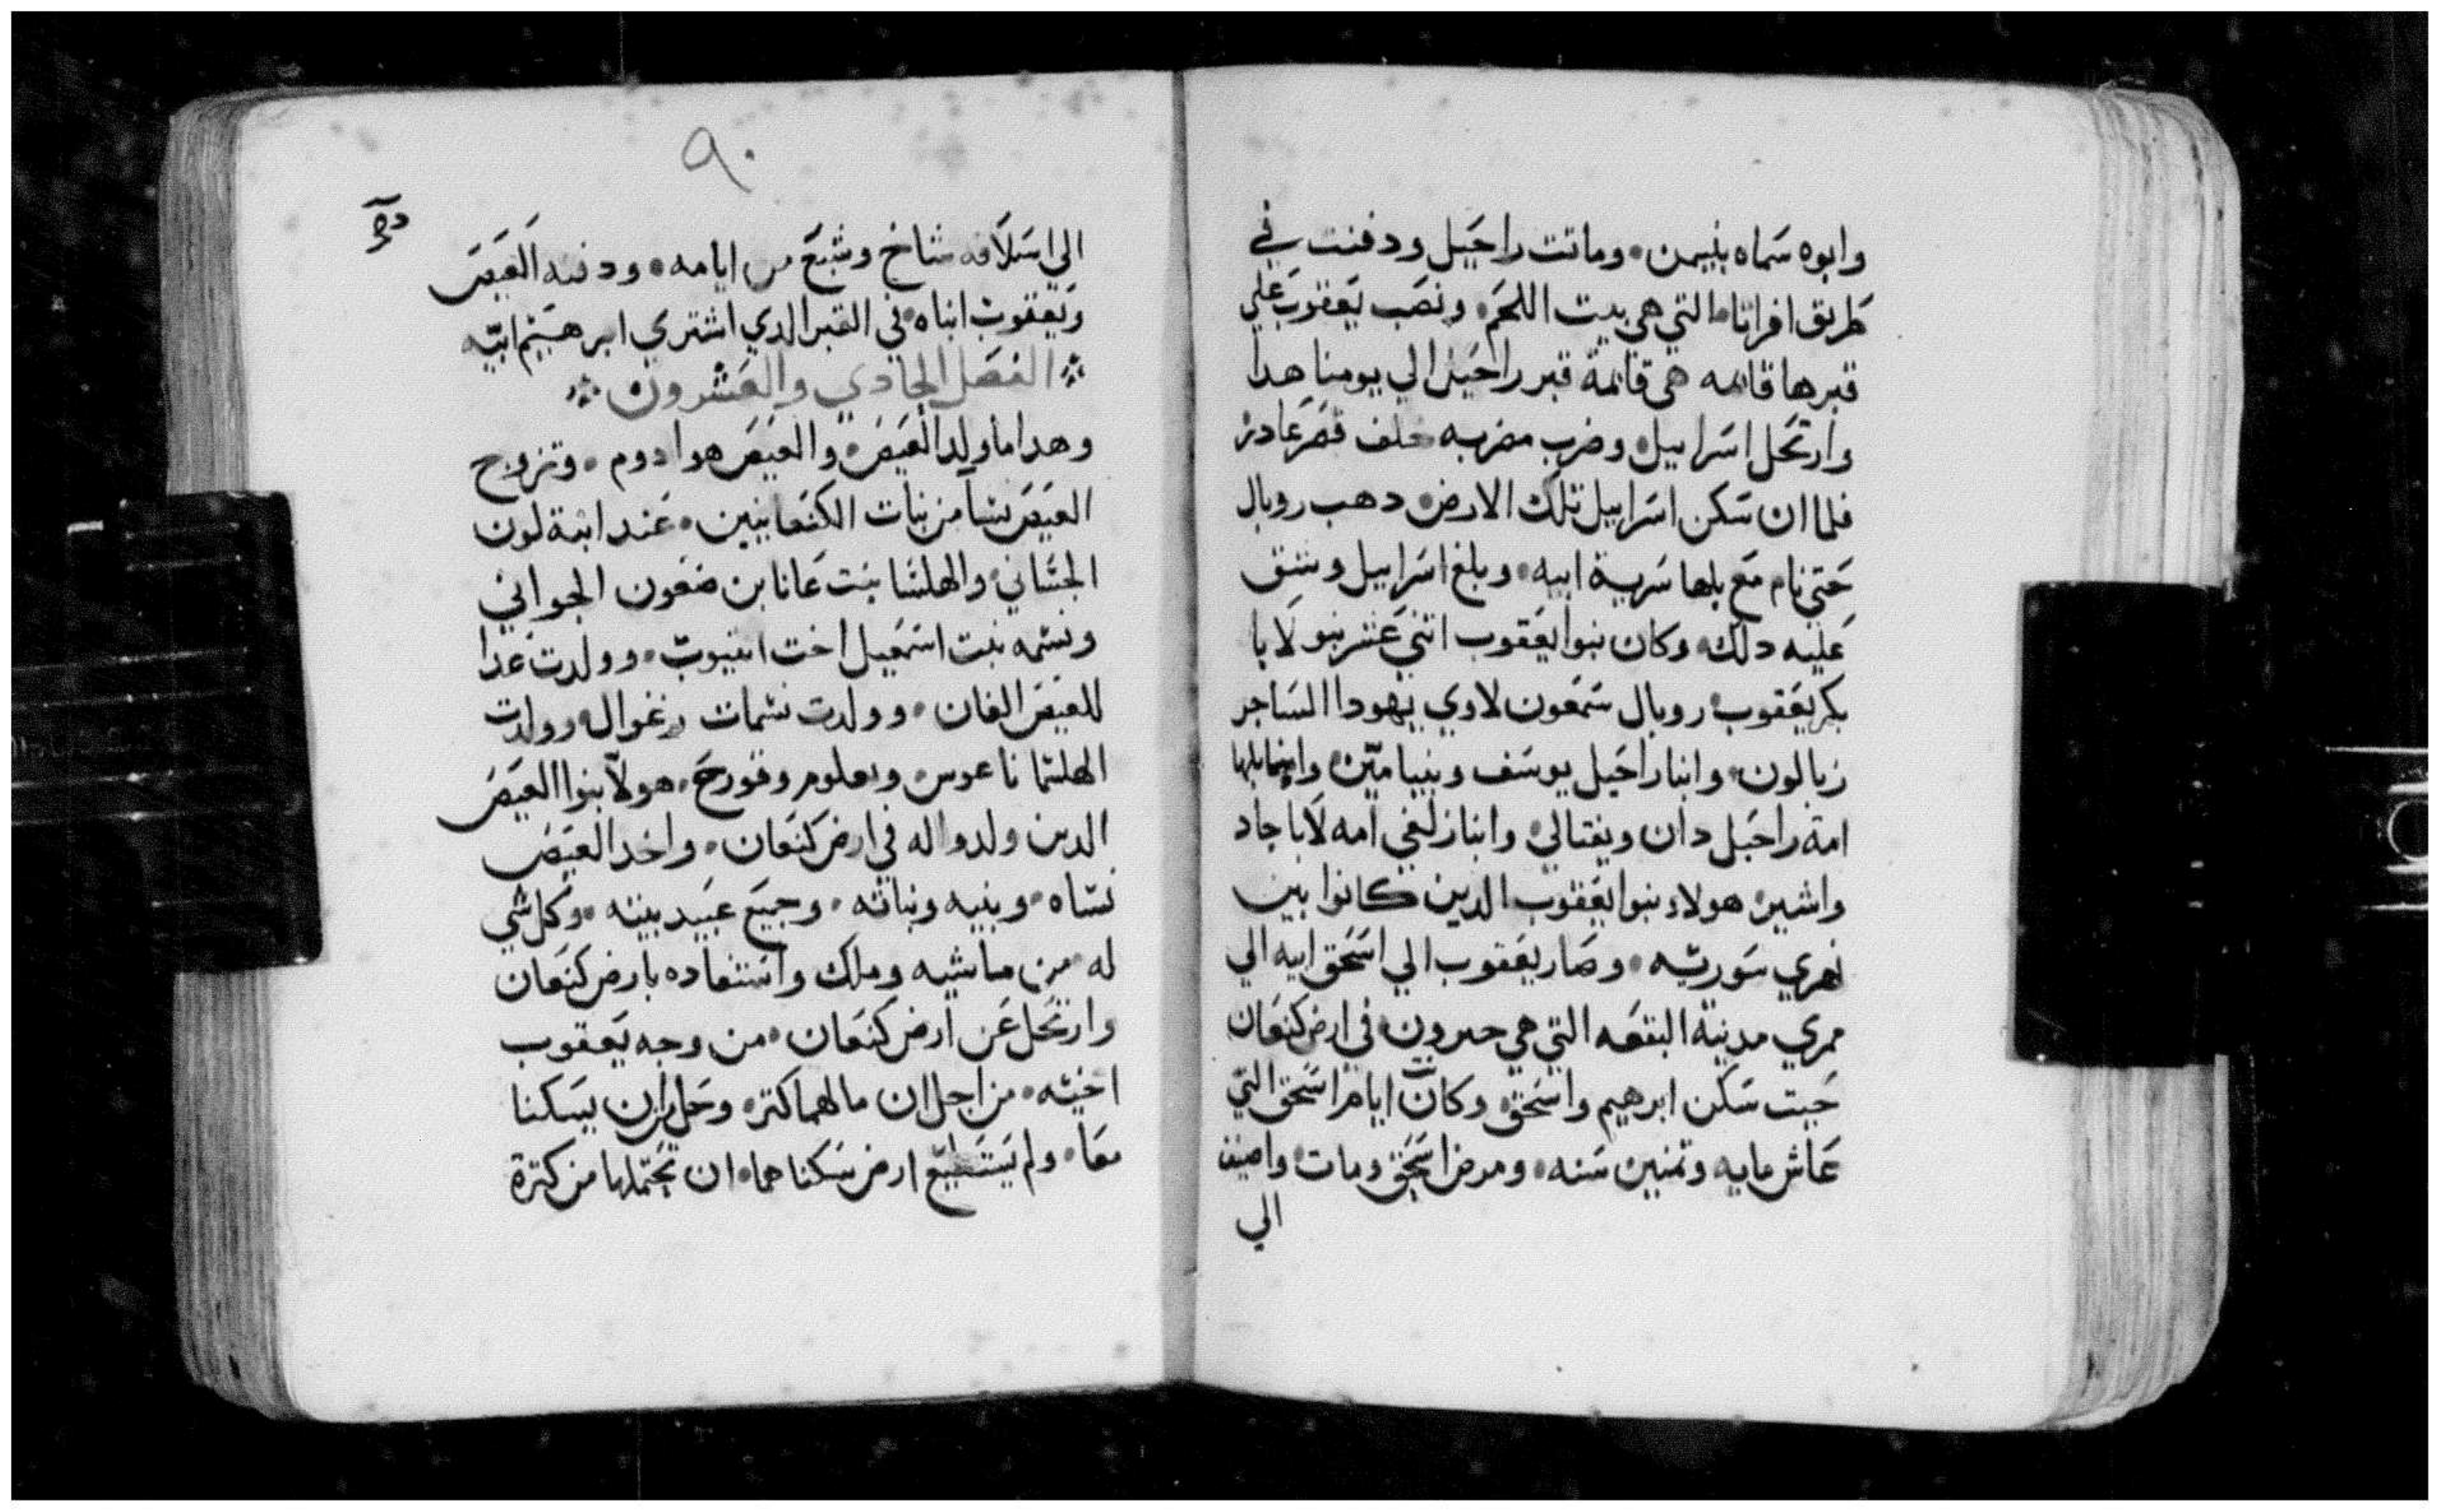 وابوه سَماه بنيمن • وماتت راحَيل ودفنت في
طريق افراتا • التي هي بيت اللحَم • ونصَب يَعقوبَ علي
قبرها قائمه هي قائمة قبر راحَيل الي يومنا هدا
وارتحَل اسَراييل • وضرب مضربه خلف قصَر عَادر •
فلما ان سَكن اسَراييل تلك الارض • دهب روبال
حَتي نام مَع بلها سَرية ابيه • وبلغ اسَراييل وشق
عَليه دلك • وكان بنوا يعَقوب اتني عَشر بنو لَايا
بكر يعَقوب • روبال شمَعون لاوي يهودا السَاجر
زبالون • وابنا راحَيل يوسَف وبنيامَين • وابنا بلها
امة راحَيل دان ونفتالي • وابنا زلفي امه لَايا جاد
واشير • هولاء بنوا يعَقوب الدين كانوا بين
نهري سَوريه • وصَار يعَقوب الي اسَحَق ابيه الي
ممري مدينة البقعَه التي هي حبرون • في ارض كنعَان
حَيت سَكن ابرهيم واسَحَق • وكانت ايام اسَحَق التي
عَاش مايه وتمنين سَنه • ومرض اسَحَق ومات • واضيف
الي
٩٠
الي اسَلَافه شاخ وشبَع من ايامه • ودفنه العَيصَ
ويَعقوب ابناه • في القبر الدي اشتري ابرهَيم ابيه
الفصَل الحَادي والعَشرون
وهدا ما ولد العَيصَ • والعَيصَ هو ادوم • وتزوج
العَيصَ نسَا من بنات الكنعَانيين • عَند ابنة لون
الجتَاني • والهلتَما بنت عَانا بن ضفعون الجواني
ونسَمه بنت اسَمعَيل اخت انبيوت • وولدت عَدا
للعَيصَ الفان • وولدت نسَمات رغوال • وولدت
الهلتما ناعوس • ويعلوم وقورحَ • هولا بنوا العَيصَ
الدين ولدوا له في ارض كنعَان • واخد العَيصَ
نسَاه • وبنيه وبناته • وجميَع عَبيد بيته • وكل شي
له • من ماشيه وملك واسَتفاده بارض كنعَان
وارتحَل عَن ارض كنعَان • من وجه يَعقوب
اخيه • من اجل ان مالهما كتر • وحَل ان يسَكنا
معَا • ولم يَسَتطيَع ارض سَكناهما • ان تحَتملها من كترة